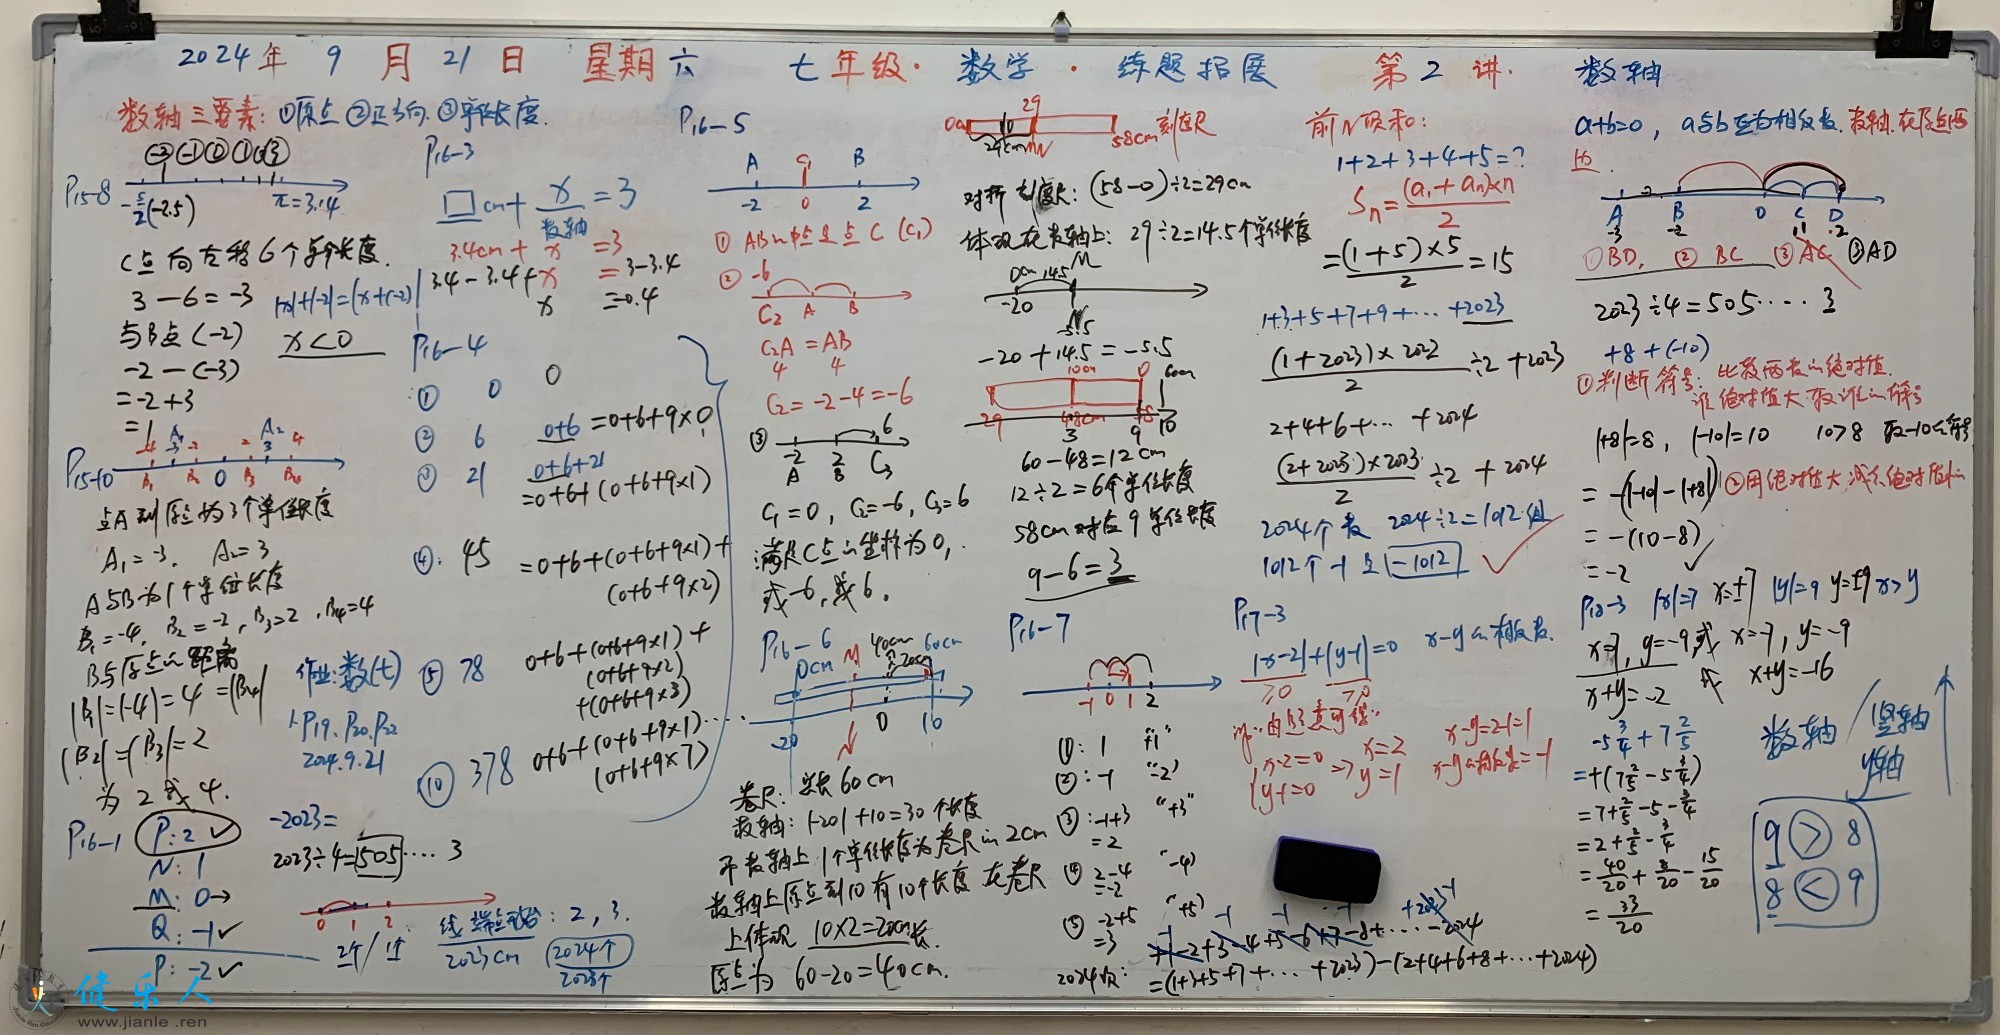 2024年 9月 21日 星期六 七年级·数学·练题拓展 第2讲· 数轴
数轴三要素: ①原点 ②正方向 ③单位长度.
P15-8
-5/2(-2.5) π=3.14
C点向左移6个单位长度.
3-6=-3
与B点(-2)
-2-(-3)
=-2+3
=1
|x|+|-2|=|x+(-2)|
x<0
P15-10
-4 A1 -3 -2 0 2 A2 3 4
B1 B2 B3 B4
点A到原点为3个单位长度
A1=-3, A2=3
A与B为1个单位长度
B1=-4, B2=-2, B3=2, B4=4
B与原点的距离
|B1|=|-4|=4=|B4|
|B2|=|B3|=2
为2或4.
P16-1 P:2 ✓
N:1
M:0→
Q:-1✓
P:-2✓
作业:数(七)
P19.P20.P22
2024.9.21
-2023=
2023÷4=505····3
0 1 2
2个/1个
线段端点: 2, 3.
2023cm 2024个
2023个
P16-3
□cm+x=3
数轴
3.4cm+x=3
3.4-3.4+x=3-3.4
x=-0.4
P16-4
① 0 0
② 6 0+6=0+6+9×0
③ 21 0+6+21
=0+6+(0+6+9×1)
④ 45 =0+6+(0+6+9×1)+
(0+6+9×2)
⑤ 78 0+6+(0+6+9×1)+
(0+6+9×2)
+(0+6+9×3)
⑩ 378 0+6+(0+6+9×1)····
(0+6+9×7)
P16-5
A C1 B
-2 0 2
① AB的中点是点C (C1)
② -6
C2 A B
C2A=AB
4 4
C2=-2-4=-6
③ 6
-2 2
A B C3
C1=0, C2=-6, C3=6
满足C点的坐标为0,
或-6,或6.
P16-6
0cm M 40cm 20cm 60cm
-20 N 0 10
卷尺: 实长60cm
数轴: |-20|+10=30个长度
即数轴上1个单位长度为卷尺的2cm
数轴上原点到10有10个长度 在卷尺
上体现 10×2=20cm长.
原点为 60-20=40cm.
0cm 29 58cm刻度尺
29cm
对折刻度长: (58-0)÷2=29cm
体现在数轴上: 29÷2=14.5个单位长度
0cm 14.5 M
-20 -5.5
-20+14.5=-5.5
29 48cm 58 60cm
3 9 10
60-48=12cm
12÷2=6个单位长度
58cm对应9单位长度
9-6=3
P16-7
-1 0 1 2
①: 1 "+1"
②: -1 "-2"
③: -1+3 "+3"
=2
④ 2-4 "-4"
=-2
⑤ -2+5 "+5"
=3
2024次:
1-2+3-4+5-6+7-8+····-2024
=(1+3+5+7+···+2023)-(2+4+6+8+···+2024)
前N项和:
1+2+3+4+5=?
Sn=(a1+an)×n/2
=(1+5)×5/2=15
1+3+5+7+9+···+2023
(1+2023)×2022/2÷2+2023
2+4+6+···+2024
(2+2023)×2023/2÷2+2024
2024个数 2024÷2=1012组
1012个-1是-1012 ✓
P17-3
|x-2|+|y-1|=0 x-y的相反数.
≥0 ≥0
x-2=0 ⇒ x=2 x-y=2-1=1
y-1=0 y=1 x-y的相反数=-1
a+b=0, a与b互为相反数. 数轴.在原点两
边.
A B 0 C D
-3 -2 1 2
①BD, ② BC ③ AC ③AD
2023÷4=505····3
+8+(-10)
①判断符号: 比较两数的绝对值.
谁绝对值大 取谁的符号
|+8|=8, |-10|=10 10>8 取-10的符号
=-(|-10|-|+8|) ②用绝对值大减去绝对值小
=-(10-8)
=-2 ✓
P18-3 |x|=7 x=±7 |y|=9 y=±9 x>y
x=7, y=-9,或 x=-7, y=-9
x+y=-2 或 x+y=-16
-5 3/4+7 2/5
=+(7 2/5-5 3/4)
=7+2/5-5-3/4
=2+2/5-3/4
=40/20+8/20-15/20
=33/20
数轴/竖轴
y轴
9 > 8
8 < 9
健乐人
www.jianle.ren